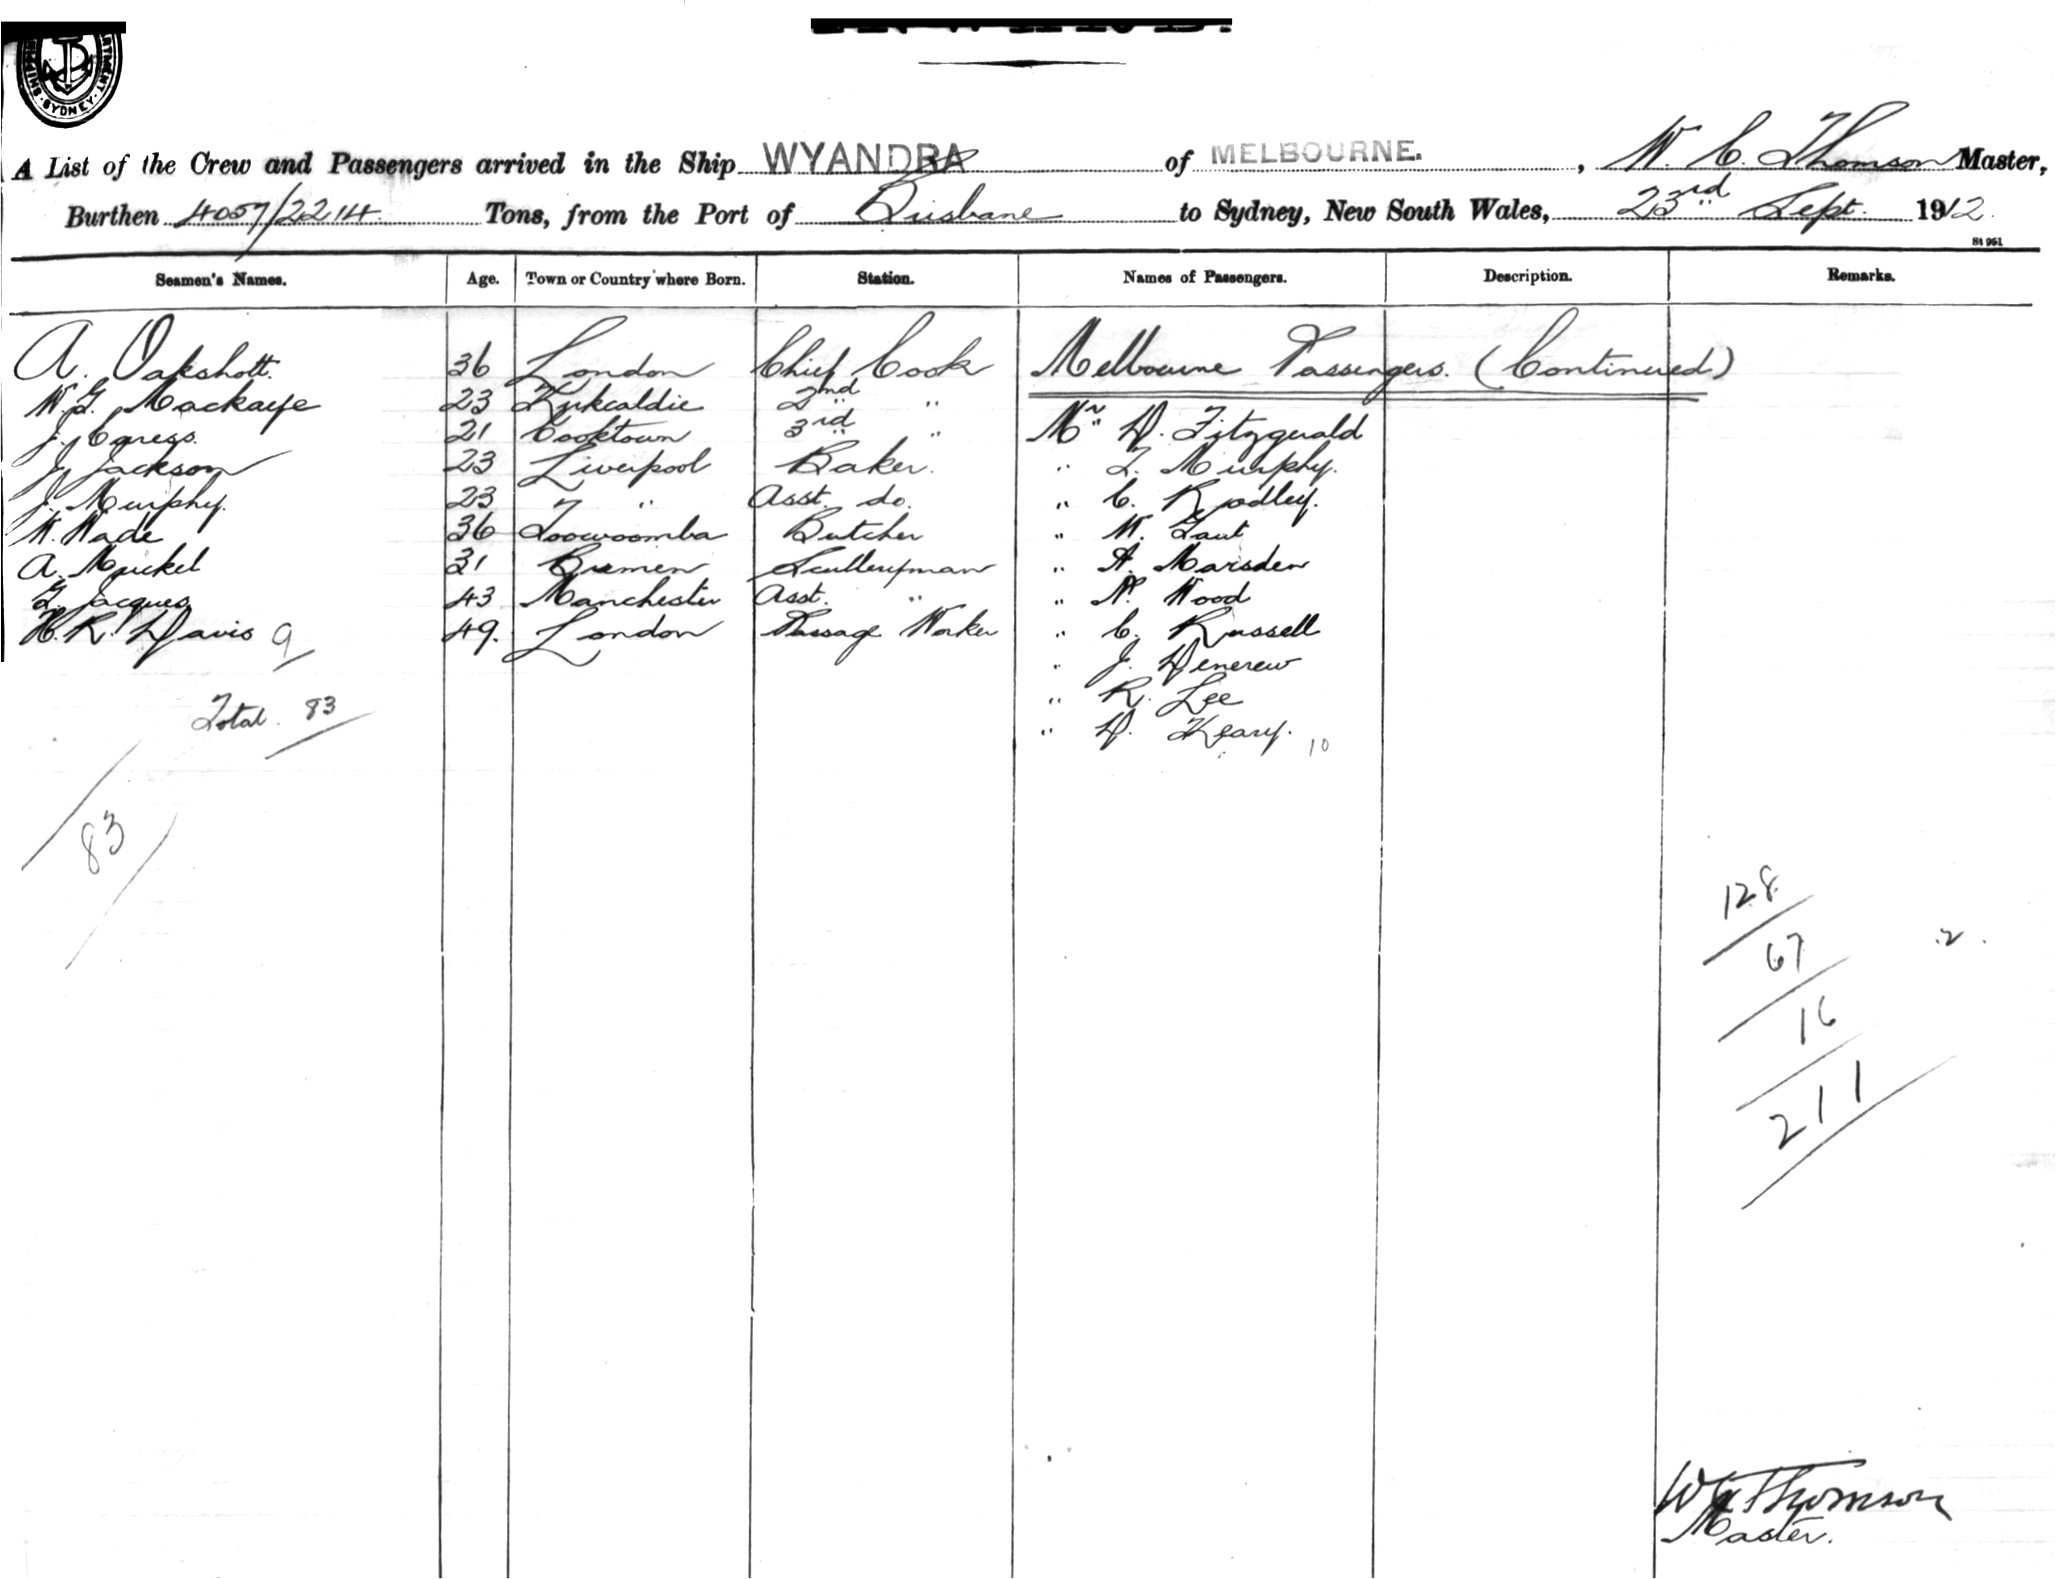 SYDNEY
A List of the Crew and Passengers arrived in the Ship WYANDRA of MELBOURNE. , W. C. Thomson Master,
Burthen 4057/2214 Tons, from the Port of Brisbane to Sydney, New South Wales, 23rd Sept. 1912.
St 961
Seamen's Names. Age. Town or Country where Born. Station. Names of Passengers. Description. Remarks.
A. Oakshott. 36 London Chief Cook Melbourne Passengers. (Continued)
W. G. Mackaye 23 Kirkcaldie 2nd "
J. Cgress. 21 Cooktown 3rd " Mr D. Fitzgerald
J. Jackson 23 Liverpool Baker. " T. Murphy.
J. Murphy. 23 " " Asst. do. " C. Rodley.
W. Wade 36 Toowoomba Butcher " W. Gaut
A. Muckel 31 Bremen Sculleryman " A. Marsden
Jacques 43 Manchester Asst. " " N. Wood
H. R. Davis 9 49. London Passage Worker " C. Russell
" J. Denerew
" R. Lee
Total. 83
" D. Keary. 10
83
128
67 2
16
211
W C Thomson
Master.